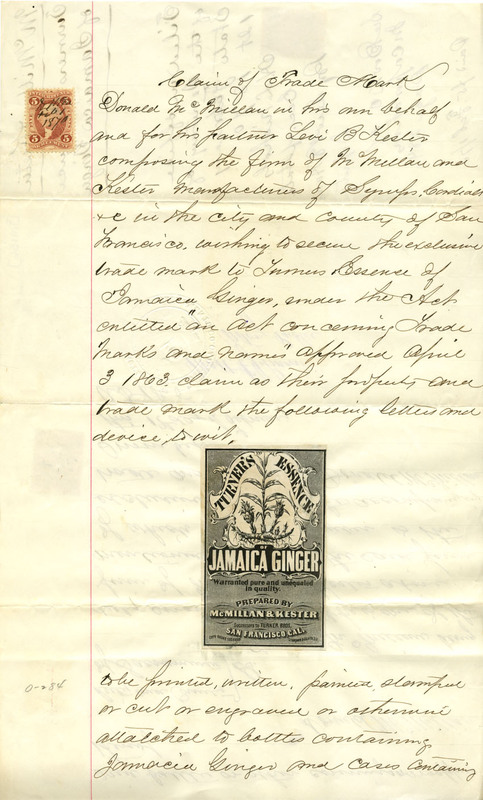 Claim of Trade Mark
Donald McMillan in his own behalf
and for his partner Levi B Kester
composing the firm of McMillan and
Kester Manufacturers of Syrups, Cordials
&c in the city and County of San
Francisco, wishing to secure the exclusive
trade mark to Turners Essense of
Jamaica Ginger, under the Act
entitled "an Act concerning Trade
Marks and names" approved April
3 1863. claim as their property and
trade mark the following letters and
device, to wit,
5 5
5 5
TURNER'S ESSENCE
OF
JAMAICA GINGER
Warranted pure and unequaled
in quality.
PREPARED BY
McMILLAN & KESTER
Successors to TURNER BROS.
SAN FRANCISCO CAL.
0-284
to be printed, written, painted stamped
or cut or engraved or otherwise
attatched to bottles containing
Jamacia Ginger and cases containing